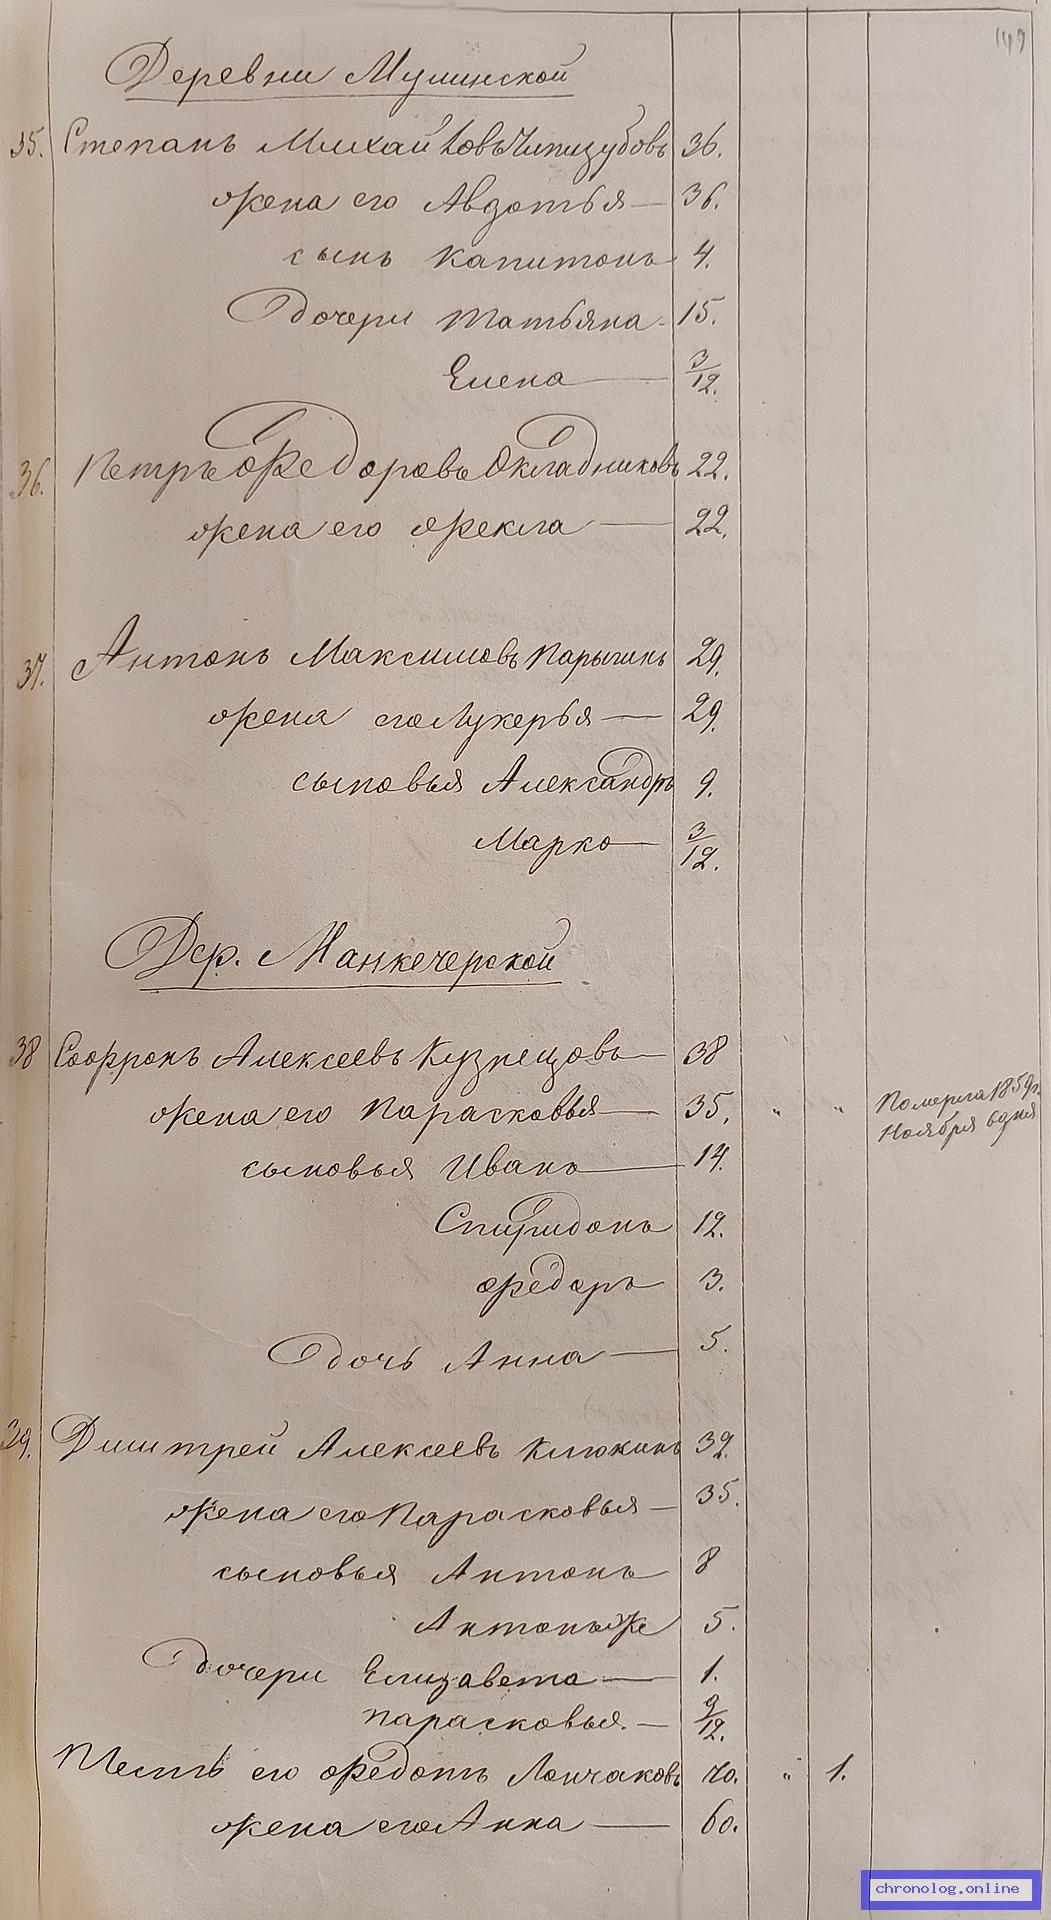 149
Деревни Мулинской
35. Степанъ Михайловъ Чипизубовъ 36.
жена его Авдотья — 36.
сынъ Капитонъ 4.
Дочери Татьяна 15.
Елена — 3/12.
36. Петръ Федоровъ Окладниковъ 22.
жена его Фекла — 22.
37. Антонъ Максимовъ Парыгинъ 29.
жена его Лукерья — 29.
сыновья Александръ 9.
Марко — 3/12.
Дер. Манкечерской
38 Софронъ Алексеевъ Кузнецовъ — 38
жена его Парасковья — 35. " " Померла 1859 г.
Ноября 6 дня
сыновья Иванъ — 14.
Спиридонъ 12.
Федоръ 3.
дочь Анна — 5.
39. Дмитрей Алексеевъ Клюкинъ 39.
жена его Парасковья — 35.
сыновья Антонъ 8
Антонъ же 5.
дочери Елизавета — 1.
Парасковья. — 9/12.
Тесть его Федотъ Лончаковъ 70. " 1.
жена его Анна — 60.
chronolog.online